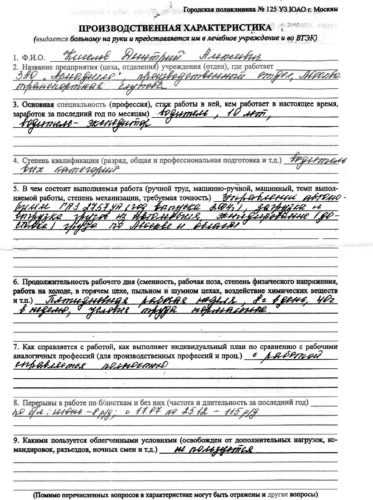 Городская поликлиника № 125 УЗ ЮАО г. Москвы
ПРОИЗВОДСТВЕННАЯ ХАРАКТЕРИСТИКА
(выдается больному на руки и представляется им в лечебное учреждение и во ВТЭК)
1. Ф.И.О. Дмитрий Алексеевич
2. Название предприятия (цеха, отделений) учреждения (отдел), где работает
ЗАО производственный отдел,
транспортная
3. Основная специальность (профессия), стаж работы в ней, кем работает в настоящее время,
заработок за последний год по месяцам) водитель, 10 лет,
водитель-экспедитор
4. Степень квалификации (разряд, общая и профессиональная подготовка и т.д.) водитель
категории
5. В чем состоит выполняемая работа (ручной труд, машинно-ручной, машинный, темп выпол-
няемой работы, степень механизации, требуемая точность) Управление автомо-
билем ГАЗ год выпуска загрузка и
выгрузка грузов из автомобиля, экспедирование (до-
ставка) груза по Москве и области
6. Продолжительность рабочего дня (сменность, рабочая поза, степень физического напряжения,
работа на холоде, в горячем цехе, пыльном и шумном цехах, воздействие химических веществ
и т.д.) Пятидневная рабочая неделя, 8ч в день, 40ч
в неделю, условия труда нормальные
7. Как справляется с работой, как выполняет индивидуальный план по сравнению с рабочими
аналогичных профессий (для производственных профессий и проц.) с работой
справляется полностью
8. Перерывы в работе по б/листкам и без них (частота и длительность за последний год)
с 11.07 по 25.12 - 115 р/д
9. Какими пользуется облегченными условиями (освобожден от дополнительных нагрузок, ко-
мандировок, разъездов, ночных смен и т.д.) не пользуется
(Помимо перечисленных вопросов в характеристике могут быть отражены и другие вопросы)